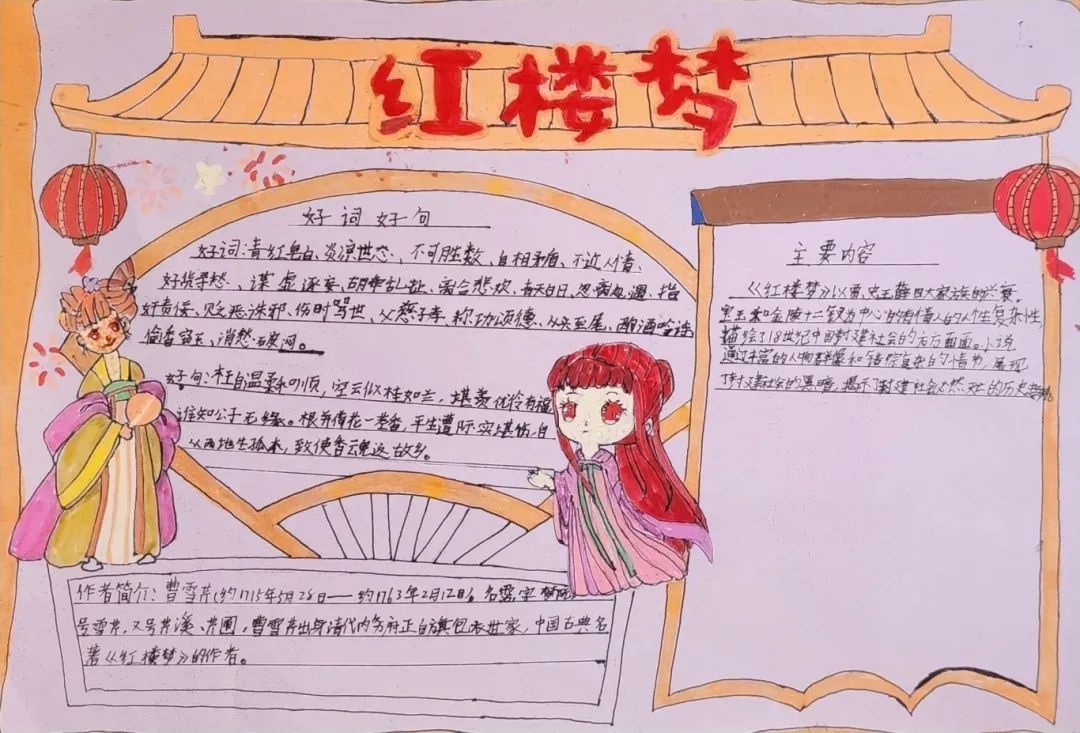 红楼梦
好词好句
好词:青红皂白、炎凉世态、不可胜数、自相矛盾、不近人情、
好货寻愁、谋虚逐妄、胡牵乱扯、离合悲欢、
好贵侫、贬恶诛邪、伤时骂世、父慈子孝、称功颂德、从头至尾、酌酒吟诗
偷香窃玉、消愁破闷。
好句:枉自温柔和顺,空云似桂如兰,堪羡优伶有福,
谁知公子无缘。根并荷花一茎香,平生遭际实堪伤,自
从两地生孤木,致使香魂返故乡。
作者简介:曹雪芹(约1715年5月28日——约1763年2月12日)。名霑,字梦阮
号雪芹,又号芹溪、芹圃,曹雪芹出身清代内务府正白旗包衣世家,中国古典名
著《红楼梦》的作者。
主要内容
《红楼梦》以贾、史、王、薛四大家族的兴衰。
宝玉和金陵十二钗为中心的有情人的人性复杂性,
描绘了18世纪中国封建社会的方方面面。小说
通过丰富的人物群像和错综复杂的情节,展现
了封建社会的黑暗,揭示了封建社会必然的历史